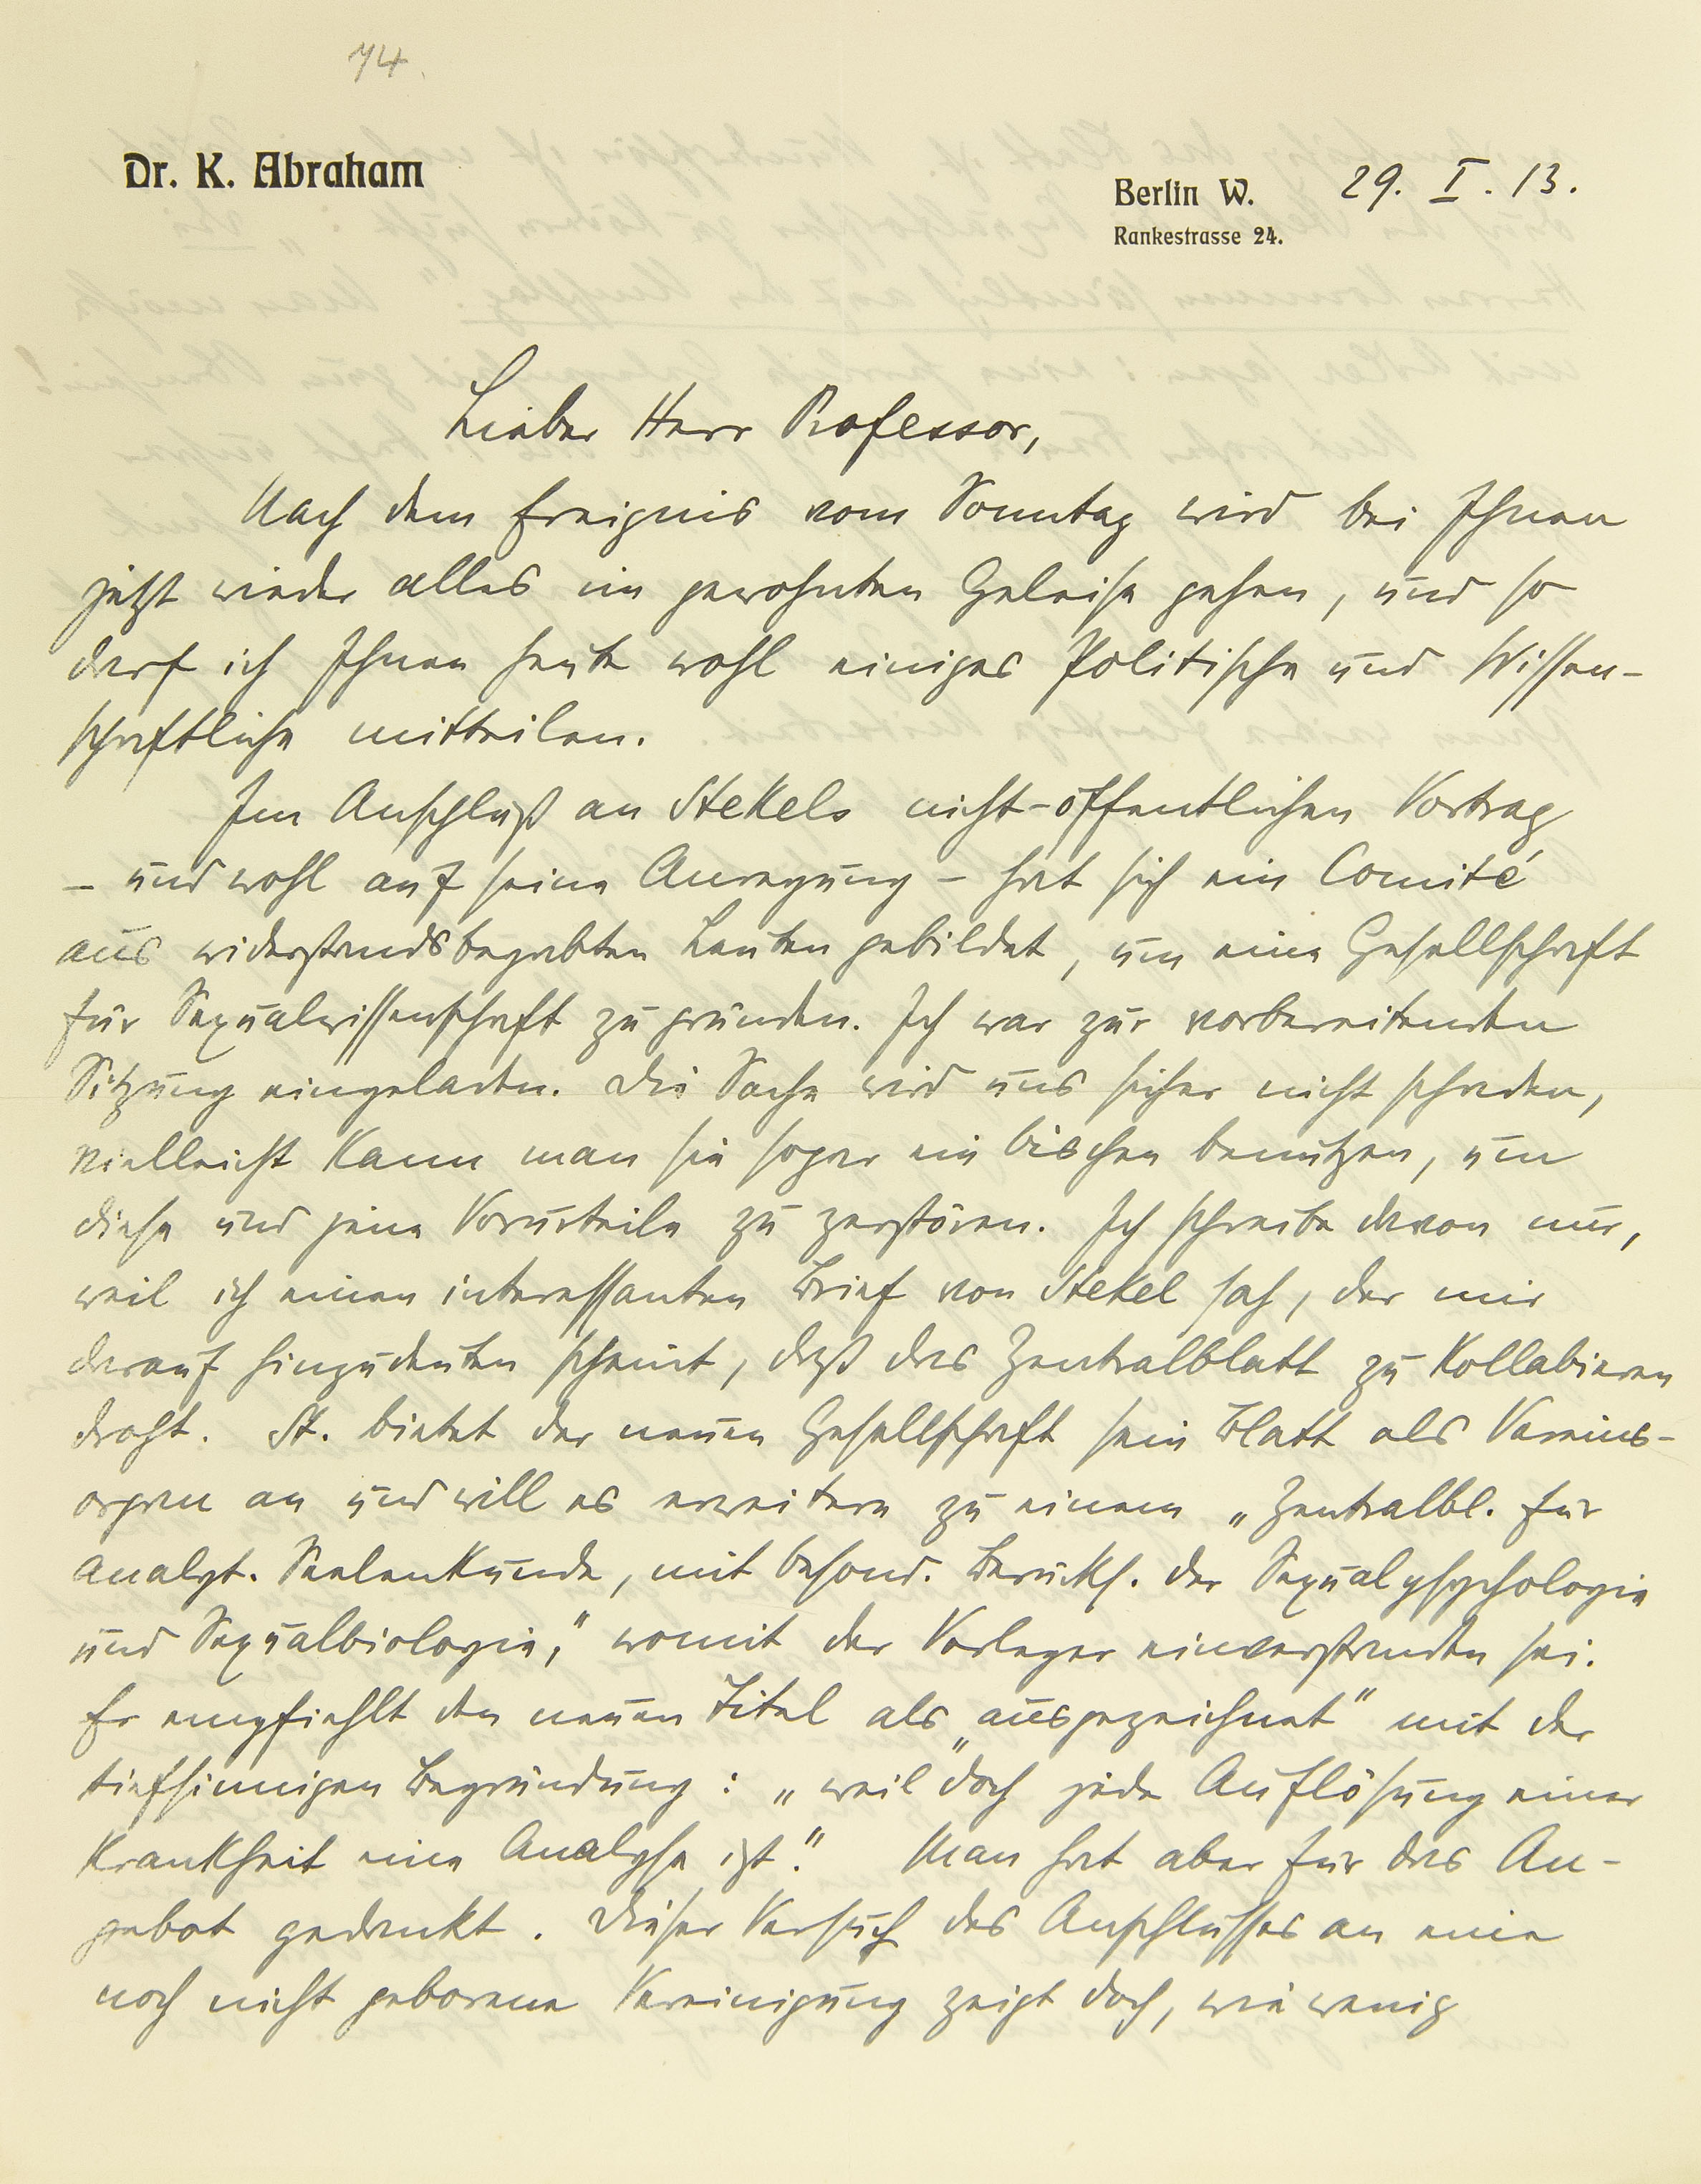 74.
Dr. K. Abraham
Berlin W. 29. I. 13.
Rankestrasse 24.
Lieber Herr Professor,
Nach dem Ereignis vom Sonntag wird bei Ihnen
jetzt wieder alles im gewohnten Geleise gehen, und so
darf ich Ihnen heute wohl einiges Politische und Wissen-
schaftliche mitteilen.
Im Anschluß an Stekels nicht-öffentlichen Vortrag
– und wohl auf seine Anregung – hat sich ein Comité
aus widerstandsbegabten Leuten gebildet, um eine Gesellschaft
für Sexualwissenschaft zu gründen. Ich war zur vorbereitenden
Sitzung eingeladen. Die Sache wird uns sicher nicht schaden,
vielleicht kann man sie sogar ein bischen benutzen, um
diese und jene Vorurteile zu zerstören. Ich schreibe davon nur,
weil ich einen interessanten Brief von Stekel sah, der mir
darauf hinzudeuten scheint, daß das Zentralblatt zu kollabieren
droht. St. bietet der neuen Gesellschaft sein Blatt als Vereins-
organ an und will es erweitern zu einem „Zentralbl. für
analyt. Seelenkunde, mit besond. Berücks. der Sexualpsychologie
und Sexualbiologie," womit der Verleger einverstanden sei.
Er empfiehlt den neuen Titel als „ausgezeichnet" mit der
tiefsinnigen Begründung: „weil doch jede Auflösung einer
Krankheit eine Analyse ist." Man hat aber für das An-
gebot gedankt. Dieser Versuch des Anschlusses an eine
noch nicht geborene Vereinigung zeigt doch, wie wenig